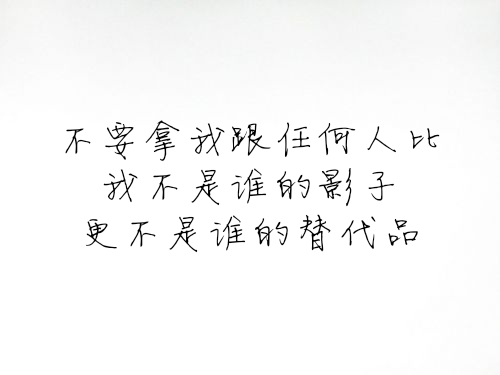 不要拿我跟任何人比
我不是谁的影子
更不是谁的替代品